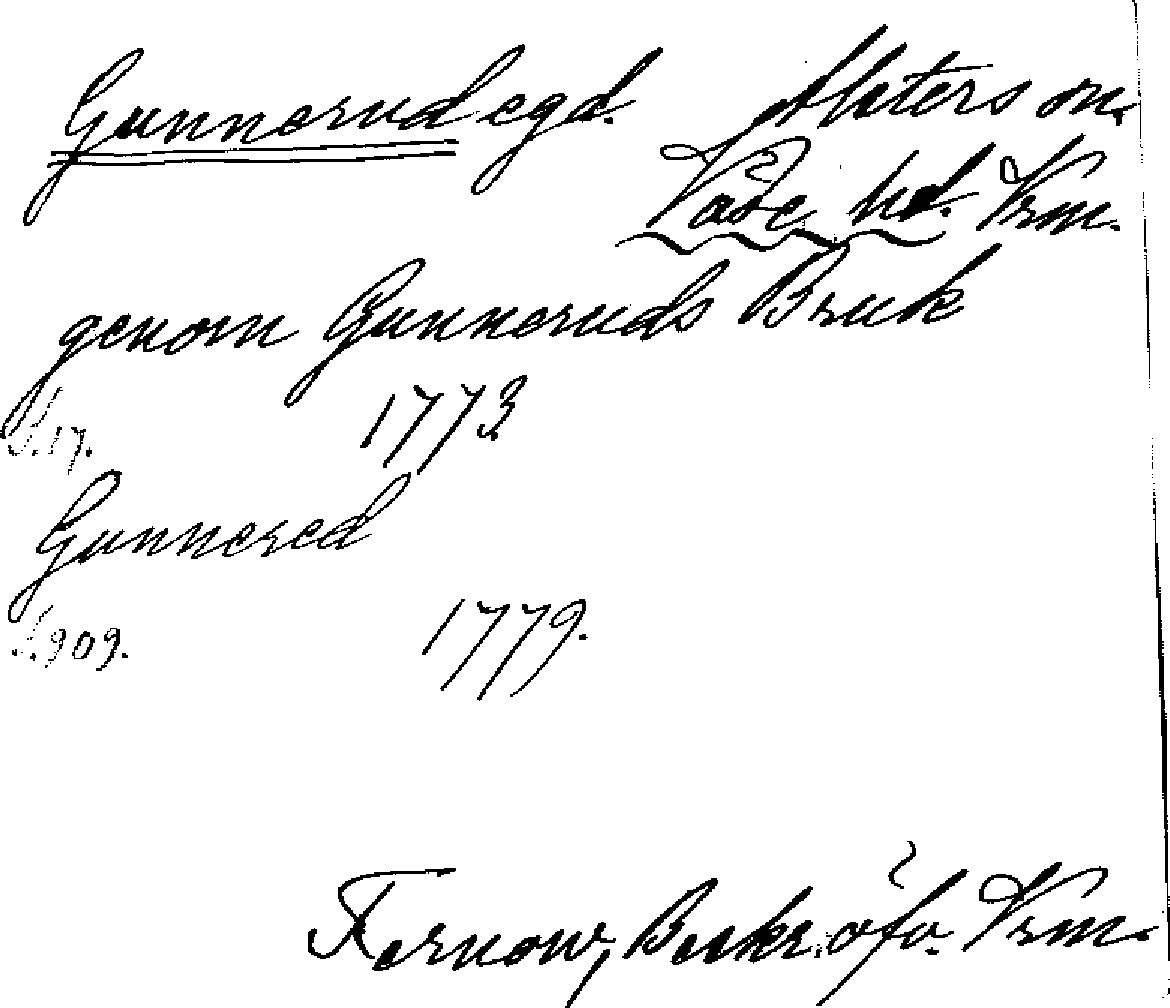 Gunnerud egd. Alsters sn.
Väse hd. Vrm.
genom Gunneruds Bruk
S. 17. 1773.
Gunnered
S. 909. 1779.
Fernow, Beskr. öfv. Vrm.